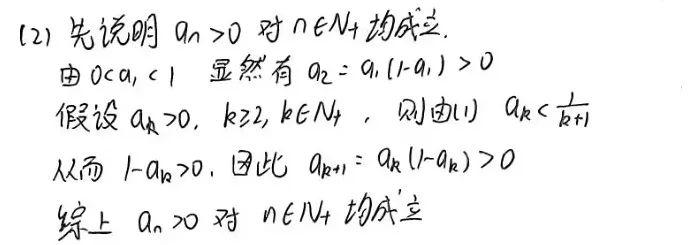 (2) 先说明 aₙ>0 对 n∈N₊ 均成立.
由 0<a₁<1 显然有 a₂=a₁(1-a₁)>0
假设 aₖ>0, k≥2, k∈N₊, 则由(1) aₖ<1/(k+1)
从而 1-aₖ>0, 因此 aₖ₊₁=aₖ(1-aₖ)>0
综上 aₙ>0 对 n∈N₊ 均成立